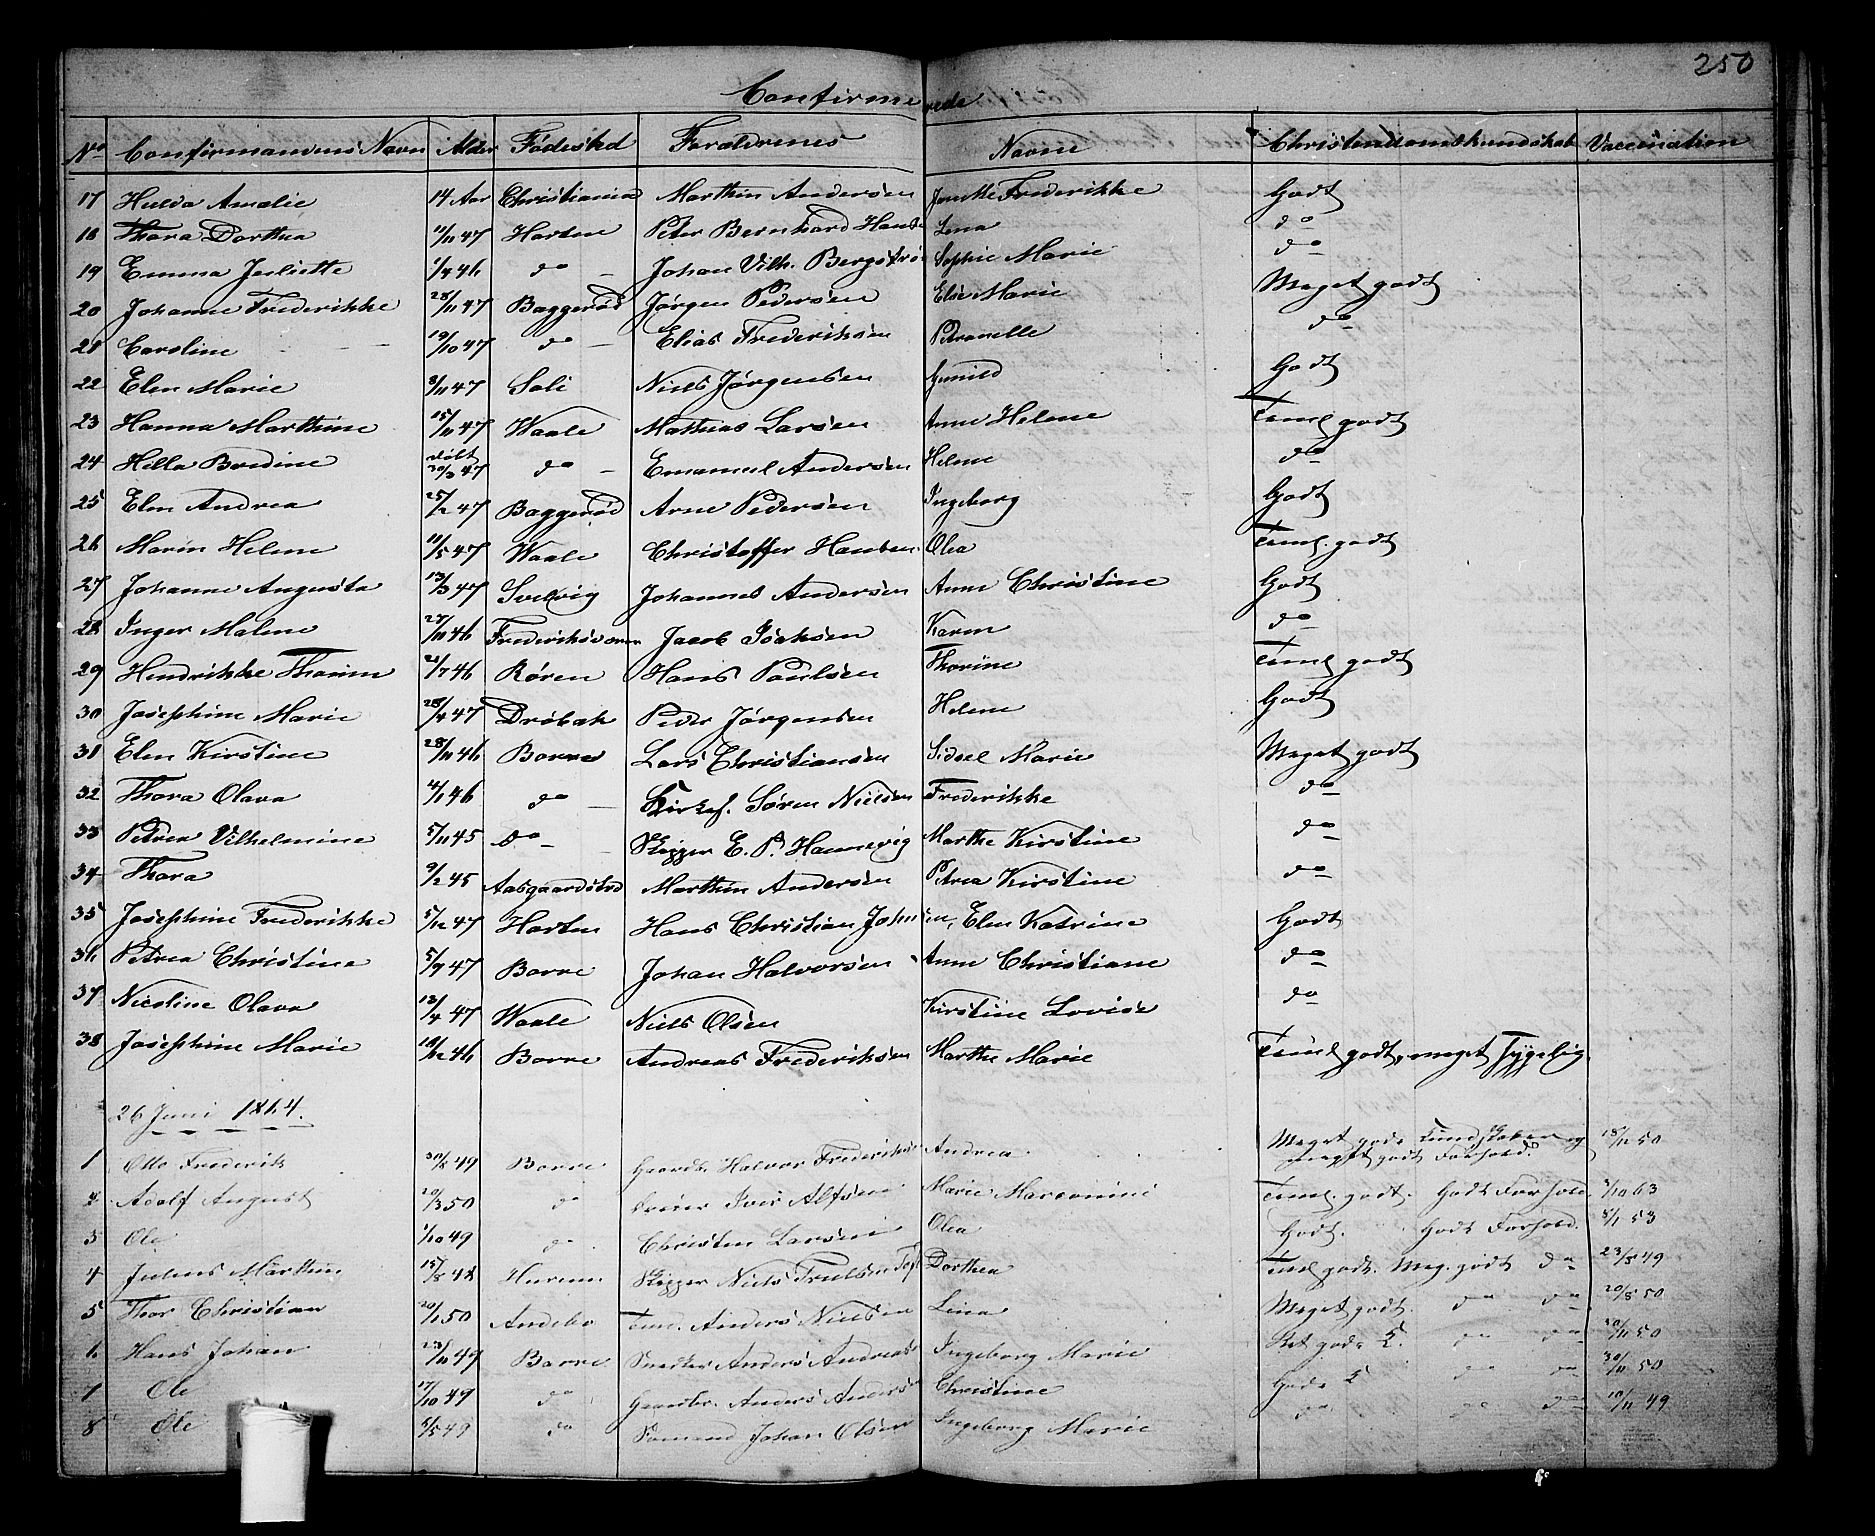 250
Confirmerede
No Confirmandens Navn Alder Fødested Forældrenes Navne Christendomskundskab Vaccination
17 Hulda Amalie 14 Aar Christiania Marthin Andersen Frederikke Godt
18 Thora Dorthea 11/11 47 Horten Peter Bernhard Hansen Lena do
19 Emma Juliette 1/4 46 do Johan Vilh. Bergstrøm Sophie Marie do
20 Johanne Frederikke 28/11 47 Baggerød Jørgen Pedersen Else Marie Meget godt
21 Caroline 19/10 47 do Elias Frederiksen Petronelle do
22 Elen Marie 3/11 47 Soli Niels Jørgensen Gunild Godt
23 Hanna Marthine 15/11 47 Waale Mathias Larsen Anne Helene Teml godt
24 Hilla Bredine døbt 30/3 47 do Emanuel Andersen Helene do
25 Elen Andrea 25/2 47 Baggerød Arne Pedersen Ingeborg Godt
26 Maren Helene 11/5 47 Waale Christoffer Hansen Olea Teml. godt
27 Johanne Augusta 13/3 47 Svelvig Johannes Andersen Anne Christine Godt
28 Inger Malene 27/11 46 Frederiksværn Jacob Isaksen Karen do
29 Hendrikke Thorine 21/7 46 Røren Hans Paulsen Thorine Teml godt
30 Josephine Marie 28/4 47 Drøbak Peder Jørgensen Helene Godt
31 Elen Kirstine 28/11 46 Borre Lars Christiansen Sidsel Marie Meget godt
32 Thora Olava 4/1 46 do Kirkes. Søren Nielsen Frederikke do
33 Petrea Vilhelmine 5/11 45 do Skipper E. P. Hannevig Marthe Kirstine do
34 Thora 9/2 45 Aasgaardstrd Marthin Andersen Petrea Kirstine do
35 Josephine Frederikke 5/12 47 Horten Hans Christian Johnsen, Elen Katrine Godt
36 Petrea Christine 5/9 47 Borre Johan Halvorsen Anne Christiane do
37 Nicoline Olava 13/4 47 Waale Niels Olsen Kirstine Lovise do
38 Josephine Marie 18/12 46 Borre Andreas Frederiksen Marthe Marie Teml godt, meget sygelig
26 Juni 1864.
1 Otto Frederik 30/5 49 Borre Gaardb. Halvor Frederiksen Andrea Meget gode Kundskaber og meget godt Forhold. 18/12 50
2 Adolf August 20/3 50 do Iver Alfsen Marie Teml. godt. Godt Forhold. 3/10 63
3 Ole 1/10 49 do Christen Larsen Olea Godt. Godt Forhold. 5/1 53
4 Julius Marthin 15/8 48 Hurum Skipper Niels Trulsen Dorthea Teml godt. Meg. godt do 23/5 49
5 Thor Christian 20/1 50 Andebo Anders Niels Lina Meget godt. do do 20/8 50
6 Hans Johan 23/11 49 Borre Snedker Anders Andreas Ingeborg Marie Ret gode K. do do 30/11 50
7 Ole 17/10 49 do Gaardbr. Anders Andersen Christine Gode K do do 30/11 50
8 Ole 5/5 49 do Sømand Johan Olsen Ingeborg Marie do do do 10/11 49